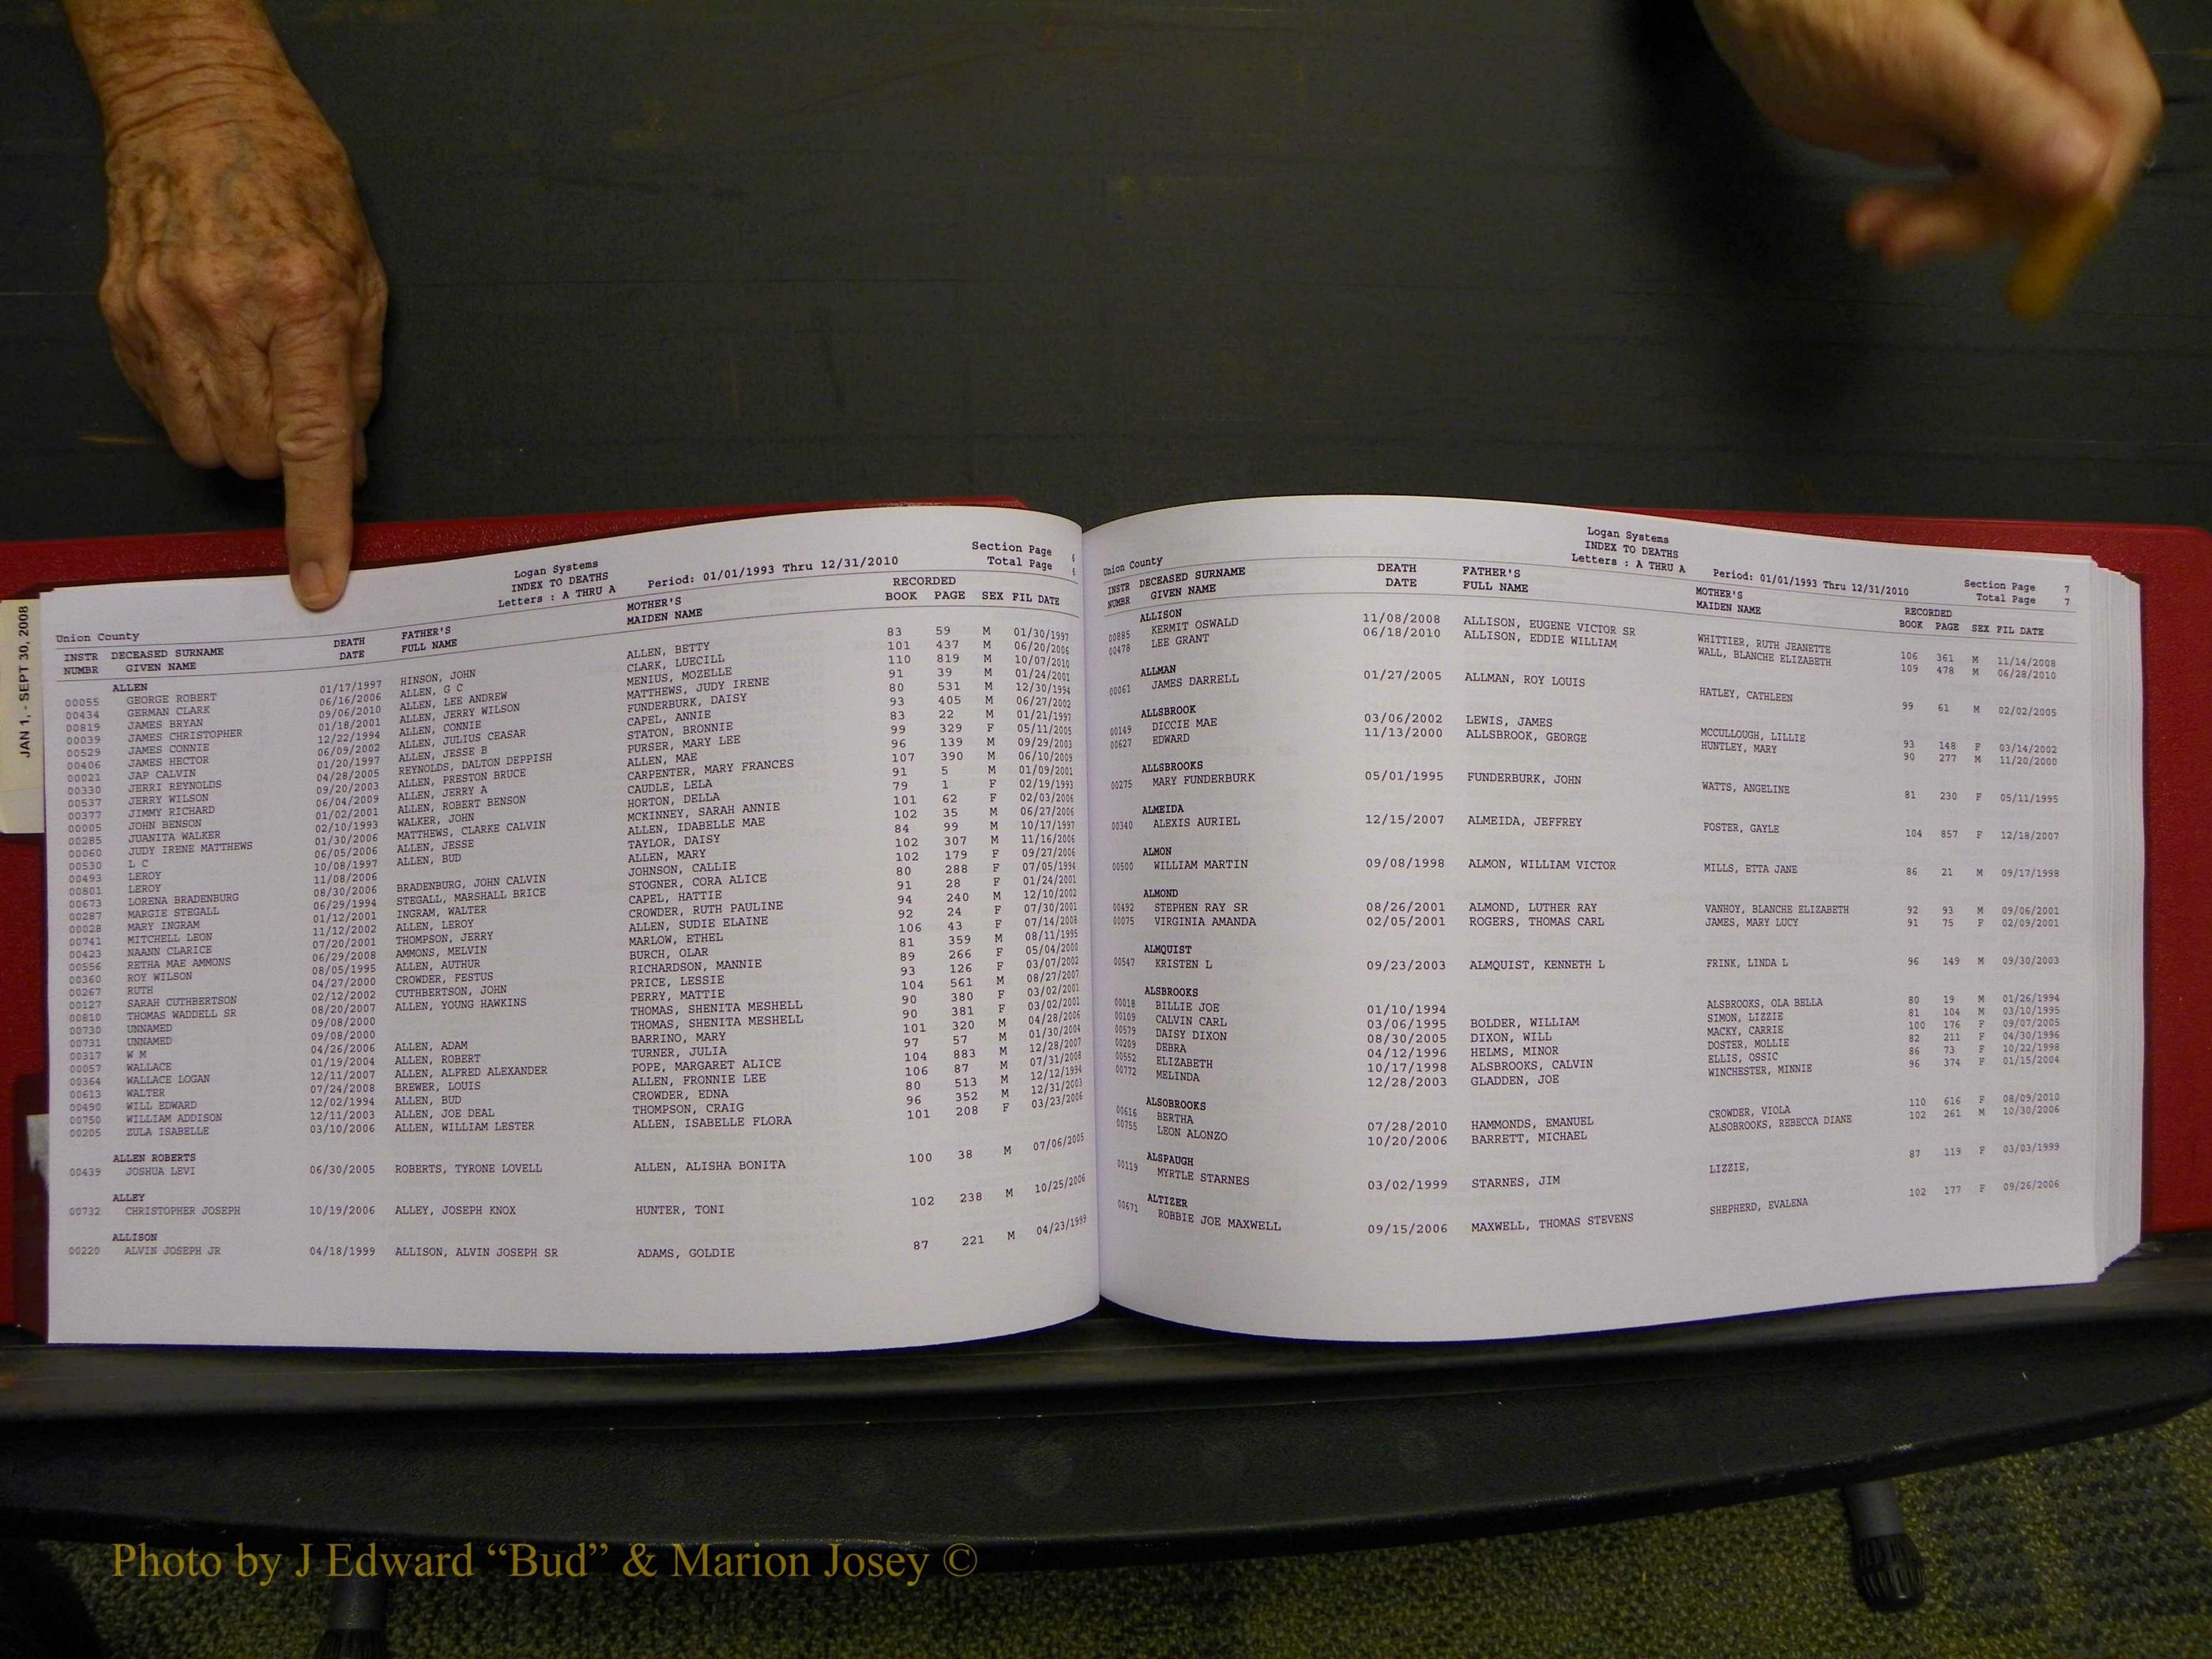 JAN 1, - SEPT 30, 2008
Logan Systems
INDEX TO DEATHS
Letters : A THRU A
Period: 01/01/1993 Thru 12/31/2010
Section Page 6
Total Page 6
Union County
INSTR DECEASED SURNAME DEATH FATHER'S MOTHER'S RECORDED
NUMBR GIVEN NAME DATE FULL NAME MAIDEN NAME BOOK PAGE SEX FIL DATE
ALLEN
00055 GEORGE ROBERT 01/17/1997 HINSON, JOHN ALLEN, BETTY 83 59 M 01/30/1997
00434 GERMAN CLARK 06/16/2006 ALLEN, G C CLARK, LUECILL 101 437 M 06/20/2006
00819 JAMES BRYAN 09/06/2010 ALLEN, LEE ANDREW MENIUS, MOZELLE 110 819 M 10/07/2010
00039 JAMES CHRISTOPHER 01/18/2001 ALLEN, JERRY WILSON MATTHEWS, JUDY IRENE 91 39 M 01/24/2001
00529 JAMES CONNIE 12/22/1994 ALLEN, CONNIE FUNDERBURK, DAISY 80 531 M 12/30/1994
00406 JAMES HECTOR 06/09/2002 ALLEN, JULIUS CEASAR CAPEL, ANNIE 93 405 M 06/27/2002
00021 JAP CALVIN 01/20/1997 ALLEN, JESSE B STATON, BRONNIE 83 22 M 01/21/1997
00330 JERRI REYNOLDS 04/28/2005 REYNOLDS, DALTON DEPPISH PURSER, MARY LEE 99 329 F 05/11/2005
00537 JERRY WILSON 09/20/2003 ALLEN, PRESTON BRUCE ALLEN, MAE 96 139 M 09/29/2003
00377 JIMMY RICHARD 06/04/2009 ALLEN, JERRY A CARPENTER, MARY FRANCES 107 390 M 06/10/2009
00005 JOHN BENSON 01/02/2001 ALLEN, ROBERT BENSON CAUDLE, LELA 91 5 M 01/09/2001
00285 JUANITA WALKER 02/10/1993 WALKER, JOHN HORTON, DELLA 79 1 F 02/19/1993
00060 JUDY IRENE MATTHEWS 01/30/2006 MATTHEWS, CLARKE CALVIN MCKINNEY, SARAH ANNIE 101 62 F 02/03/2006
00530 L C 06/05/2006 ALLEN, JESSE ALLEN, IDABELLE MAE 102 35 M 06/27/2006
00493 LEROY 10/08/1997 ALLEN, BUD TAYLOR, DAISY 84 99 M 10/17/1997
00801 LEROY 11/08/2006 ALLEN, MARY 102 307 M 11/16/2006
00673 LORENA BRADENBURG 08/30/2006 BRADENBURG, JOHN CALVIN JOHNSON, CALLIE 102 179 F 09/27/2006
00287 MARGIE STEGALL 06/29/1994 STEGALL, MARSHALL BRICE STOGNER, CORA ALICE 80 288 F 07/05/1994
00028 MARY INGRAM 01/12/2001 INGRAM, WALTER CAPEL, HATTIE 91 28 F 01/24/2001
00741 MITCHELL LEON 11/12/2002 ALLEN, LEROY CROWDER, RUTH PAULINE 94 240 M 12/10/2002
00423 NAANN CLARICE 07/20/2001 THOMPSON, JERRY ALLEN, SUDIE ELAINE 92 24 F 07/30/2001
00556 RETHA MAE AMMONS 06/29/2008 AMMONS, MELVIN MARLOW, ETHEL 106 43 F 07/14/2008
00360 ROY WILSON 08/05/1995 ALLEN, AUTHUR BURCH, OLAR 81 359 M 08/11/1995
00267 RUTH 04/27/2000 CROWDER, FESTUS RICHARDSON, MANNIE 89 266 F 05/04/2000
00127 SARAH CUTHBERTSON 02/12/2002 CUTHBERTSON, JOHN PRICE, LESSIE 93 126 F 03/07/2002
00810 THOMAS WADDELL SR 08/20/2007 ALLEN, YOUNG HAWKINS PERRY, MATTIE 104 561 M 08/27/2007
00730 UNNAMED 09/08/2000 THOMAS, SHENITA MESHELL 90 380 F 03/02/2001
00731 UNNAMED 09/08/2000 THOMAS, SHENITA MESHELL 90 381 F 03/02/2001
00317 W M 04/26/2006 ALLEN, ADAM BARRINO, MARY 101 320 M 04/28/2006
00057 WALLACE 01/19/2004 ALLEN, ROBERT TURNER, JULIA 97 57 M 01/30/2004
00364 WALLACE LOGAN 12/11/2007 ALLEN, ALFRED ALEXANDER POPE, MARGARET ALICE 104 883 M 12/28/2007
00613 WALTER 07/24/2008 BREWER, LOUIS ALLEN, FRONNIE LEE 106 87 M 07/31/2008
00490 WILL EDWARD 12/02/1994 ALLEN, BUD CROWDER, EDNA 80 513 M 12/12/1994
00750 WILLIAM ADDISON 12/11/2003 ALLEN, JOE DEAL THOMPSON, CRAIG 96 352 M 12/31/2003
00205 ZULA ISABELLE 03/10/2006 ALLEN, WILLIAM LESTER ALLEN, ISABELLE FLORA 101 208 F 03/23/2006
ALLEN ROBERTS
00439 JOSHUA LEVI 06/30/2005 ROBERTS, TYRONE LOVELL ALLEN, ALISHA BONITA 100 38 M 07/06/2005
ALLEY
00732 CHRISTOPHER JOSEPH 10/19/2006 ALLEY, JOSEPH KNOX HUNTER, TONI 102 238 M 10/25/2006
ALLISON
00220 ALVIN JOSEPH JR 04/18/1999 ALLISON, ALVIN JOSEPH SR ADAMS, GOLDIE 87 221 M 04/23/1999
Logan Systems
INDEX TO DEATHS
Letters : A THRU A
Period: 01/01/1993 Thru 12/31/2010
Section Page 7
Total Page 7
Union County
INSTR DECEASED SURNAME DEATH FATHER'S MOTHER'S RECORDED
NUMBR GIVEN NAME DATE FULL NAME MAIDEN NAME BOOK PAGE SEX FIL DATE
ALLISON
00885 KERMIT OSWALD 11/08/2008 ALLISON, EUGENE VICTOR SR WHITTIER, RUTH JEANETTE 106 361 M 11/14/2008
00478 LEE GRANT 06/18/2010 ALLISON, EDDIE WILLIAM WALL, BLANCHE ELIZABETH 109 478 M 06/28/2010
ALLMAN
00061 JAMES DARRELL 01/27/2005 ALLMAN, ROY LOUIS HATLEY, CATHLEEN 99 61 M 02/02/2005
ALLSBROOK
00149 DICCIE MAE 03/06/2002 LEWIS, JAMES MCCULLOUGH, LILLIE 93 148 F 03/14/2002
00627 EDWARD 11/13/2000 ALLSBROOK, GEORGE HUNTLEY, MARY 90 277 M 11/20/2000
ALLSBROOKS
00275 MARY FUNDERBURK 05/01/1995 FUNDERBURK, JOHN WATTS, ANGELINE 81 230 F 05/11/1995
ALMEIDA
00340 ALEXIS AURIEL 12/15/2007 ALMEIDA, JEFFREY FOSTER, GAYLE 104 857 F 12/18/2007
ALMON
00500 WILLIAM MARTIN 09/08/1998 ALMON, WILLIAM VICTOR MILLS, ETTA JANE 86 21 M 09/17/1998
ALMOND
00492 STEPHEN RAY SR 08/26/2001 ALMOND, LUTHER RAY VANHOY, BLANCHE ELIZABETH 92 93 M 09/06/2001
00075 VIRGINIA AMANDA 02/05/2001 ROGERS, THOMAS CARL JAMES, MARY LUCY 91 75 F 02/09/2001
ALMQUIST
00547 KRISTEN L 09/23/2003 ALMQUIST, KENNETH L FRINK, LINDA L 96 149 M 09/30/2003
ALSBROOKS
00018 BILLIE JOE 01/10/1994 ALSBROOKS, OLA BELLA 80 19 M 01/26/1994
00109 CALVIN CARL 03/06/1995 BOLDER, WILLIAM SIMON, LIZZIE 81 104 M 03/10/1995
00579 DAISY DIXON 08/30/2005 DIXON, WILL MACKY, CARRIE 100 176 F 09/07/2005
00209 DEBRA 04/12/1996 HELMS, MINOR DOSTER, MOLLIE 82 211 F 04/30/1996
00552 ELIZABETH 10/17/1998 ALSBROOKS, CALVIN ELLIS, OSSIC 86 73 F 10/22/1998
00772 MELINDA 12/28/2003 GLADDEN, JOE WINCHESTER, MINNIE 96 374 F 01/15/2004
ALSOBROOKS
00616 BERTHA 07/28/2010 HAMMONDS, EMANUEL CROWDER, VIOLA 110 616 F 08/09/2010
00755 LEON ALONZO 10/20/2006 BARRETT, MICHAEL ALSOBROOKS, REBECCA DIANE 102 261 M 10/30/2006
ALSPAUGH
00119 MYRTLE STARNES 03/02/1999 STARNES, JIM LIZZIE, 87 119 F 03/03/1999
ALTIZER
00671 ROBBIE JOE MAXWELL 09/15/2006 MAXWELL, THOMAS STEVENS SHEPHERD, EVALENA 102 177 F 09/26/2006
Photo by J Edward “Bud” & Marion Josey ©